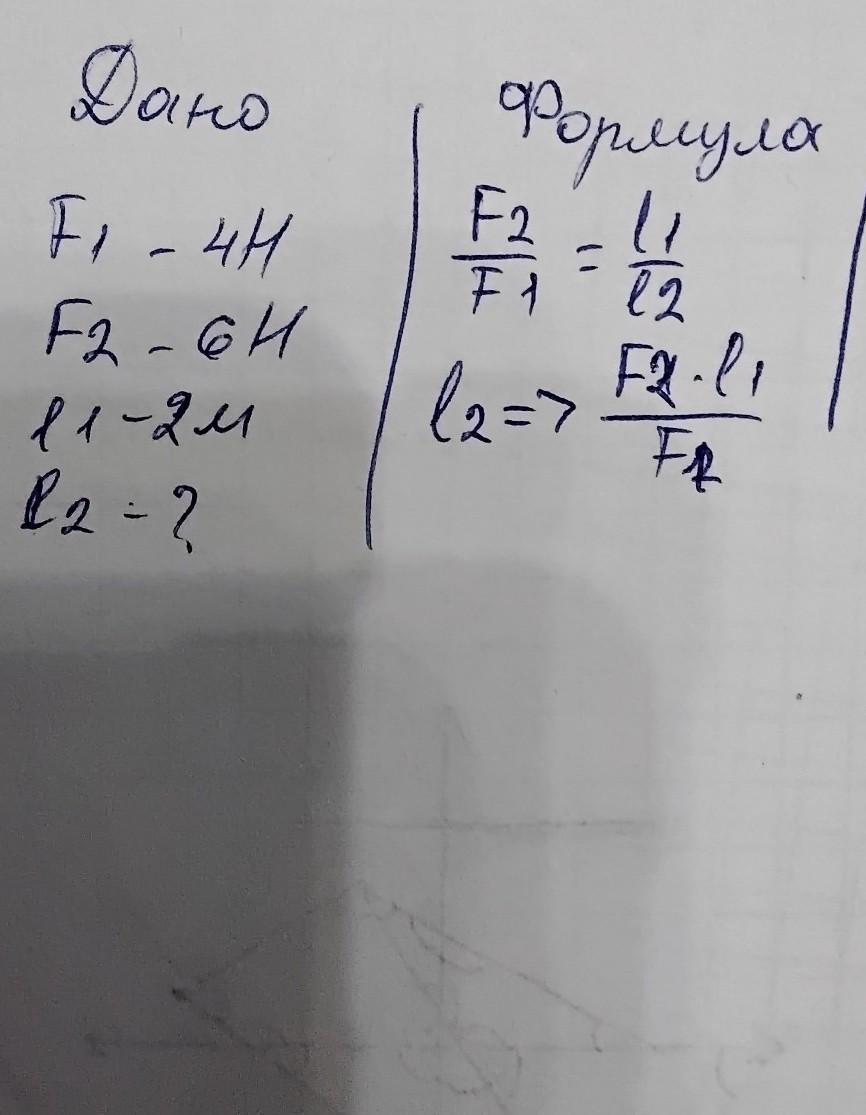 Дано
F1 - 4Н
F2 - 6Н
l1 - 2м
l2 - ?
Формула
F2/F1 = l1/l2
l2 => F2·l1/F1